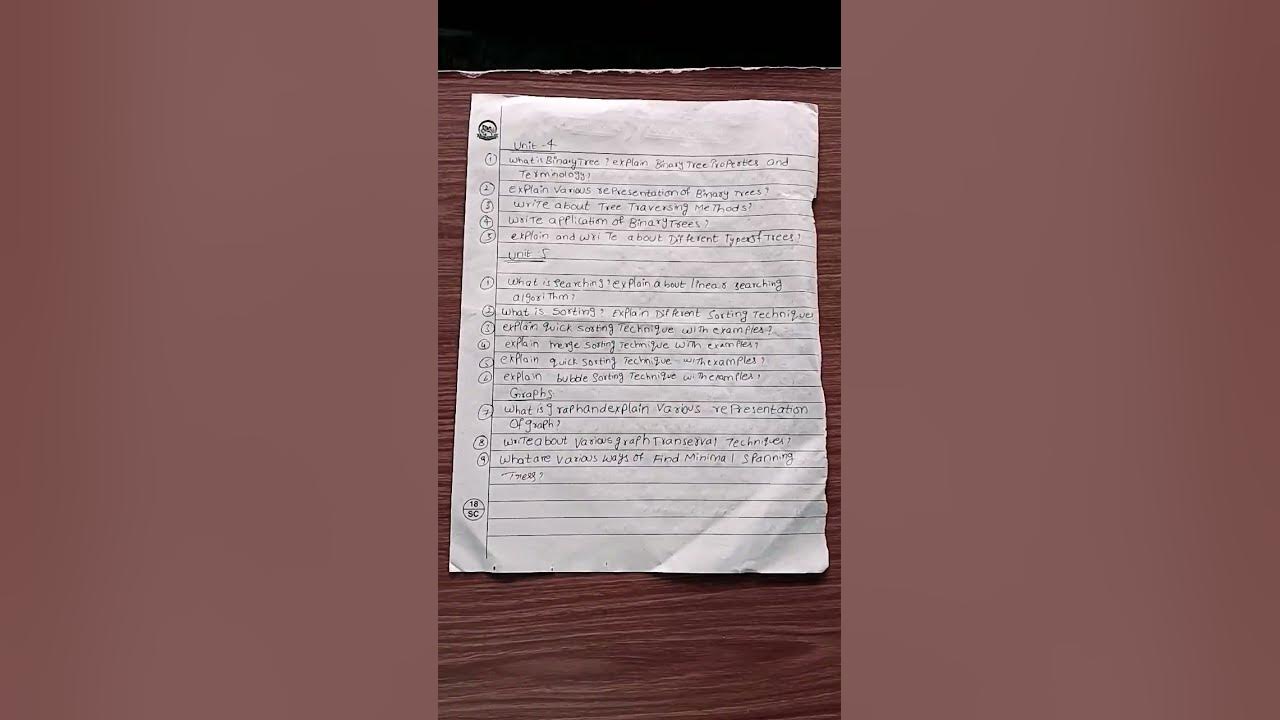 Unit-4
① what is Binary Tree? explain Binary Tree Properties and
Termnology?
② explain various representation of Binary Trees?
③ write about Tree Traversing Methods?
④ write application of Binary Trees?
⑤ explain and write about Different Types of Trees?
Unit 5
① what is searching? explain about linear searching
algorithm?
② what is sorting? Explain Different Sorting Techniques
③ explain quick sorting Technique with examples?
④ explain merge sorting Technique with examples?
⑤ explain quick sorting Technique with examples?
⑥ explain bubble sorting Technique with examples?
Graphs
⑦ what is graph and explain various representation
Of graph?
⑧ write about various graph Transerval Techniques?
⑨ what are various ways of Find Minimal Spanning
Tress?
18
SC